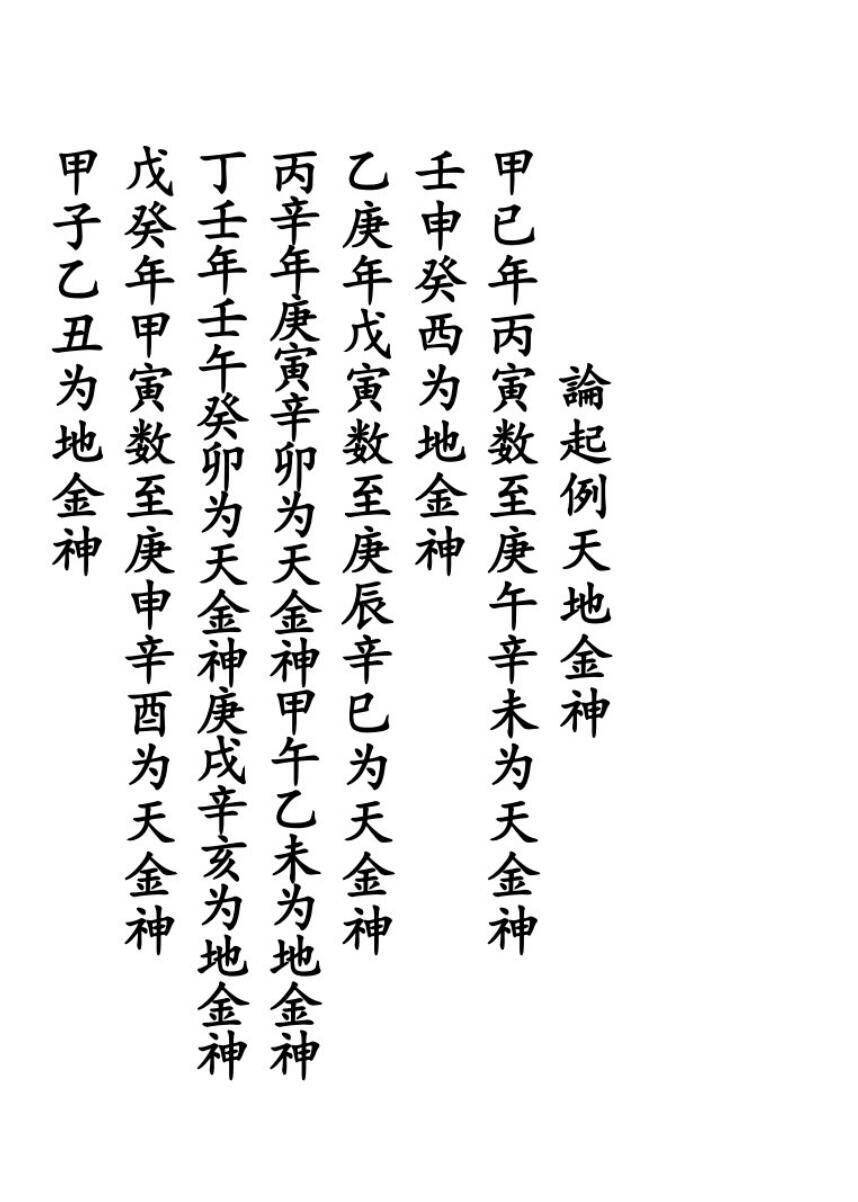 論起例天地金神
甲已年丙寅数至庚午辛未为天金神
壬申癸西为地金神
乙庚年戊寅数至庚辰辛巳为天金神
丙辛年庚寅辛卯为天金神甲午乙未为地金神
丁壬年壬午癸卯为天金神庚戌辛亥为地金神
戊癸年甲寅数至庚申辛酉为天金神
甲子乙丑为地金神